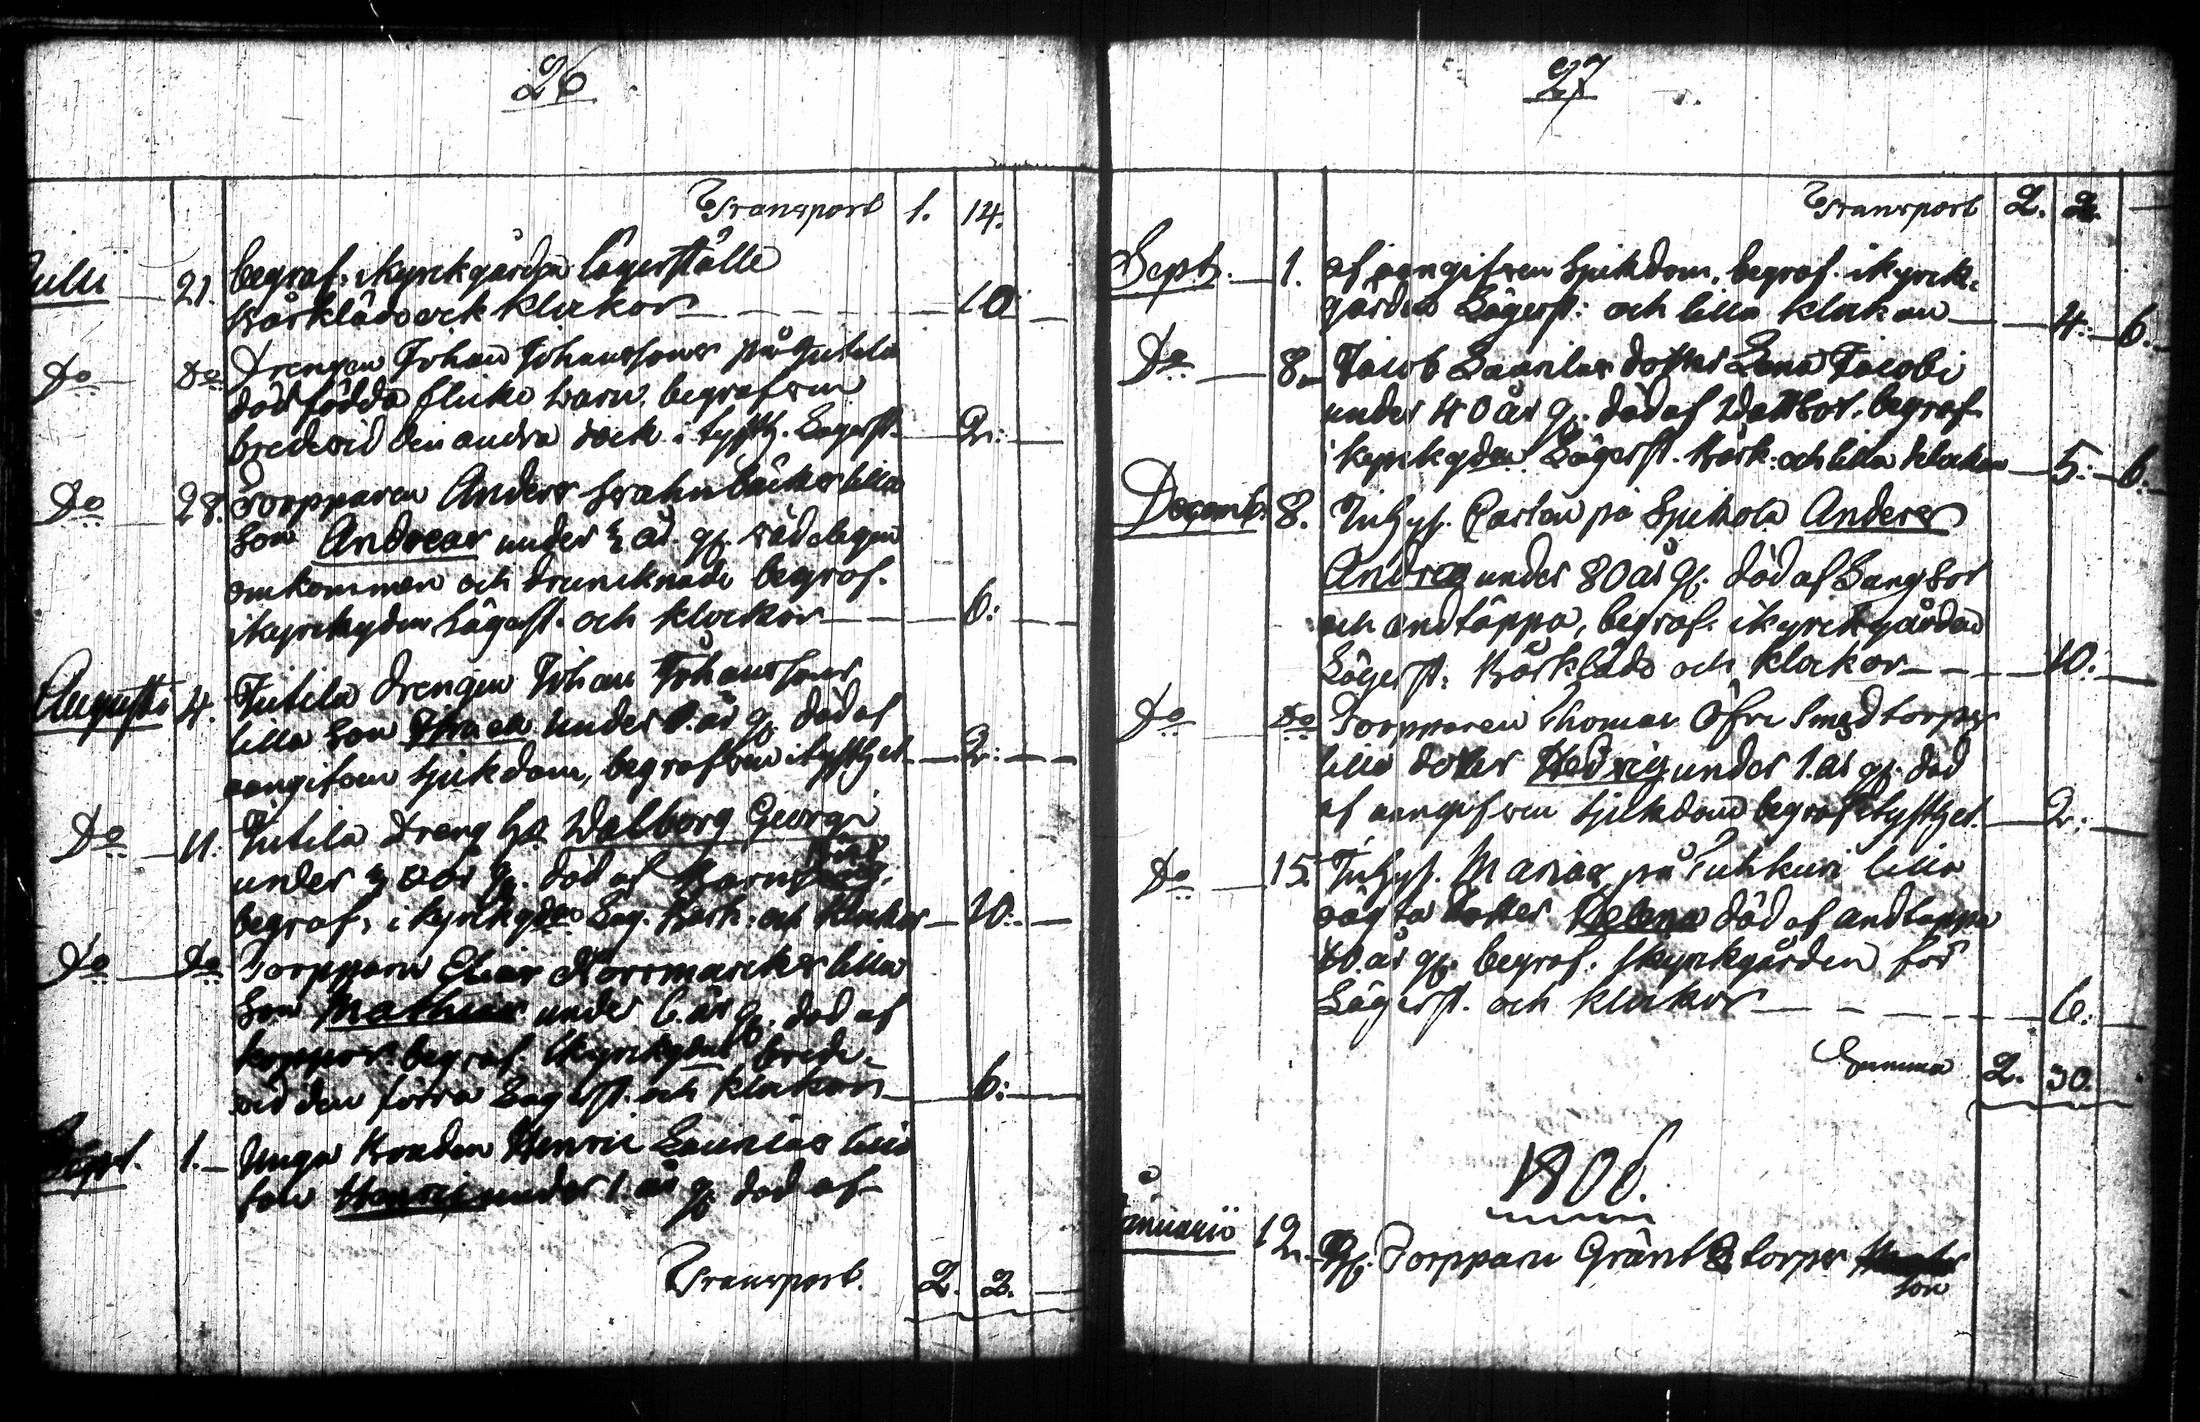 26
Transport 1. 14.
Julii 21. begraf. i kyrckgården Lägerställe
Bårkläde ock klockor 10
Do Do Drengen Johan Johanssons på Jutila
död födda flicke barn, begrafven
bredevid den andra dock i tysth. Lägerst. 2:
Do 28. Torpparen Anders
Son Andreas under år gl. vådeligen
omkommen och druncknade begraf.
i kyrckgden Lägerst. och klockor 6:
Augusti 4. Jutila drengen Johan Johanssons
lilla Son under år gl. död af
oangifven Sjukdom, begrafven i tysthet 2:
Do 11. Jutila Dreng Hu. Walborg Georgi
under år gl. död af Barn
begraf. i kyrckgden Läg. Bårk. och klockor 10:
Do Do Torpparn Elias Norrmarcks lilla
Son Mathias under 6. år gl. död af
koppor. begraf. i kyrckgden brede-
vid den förra Lägerst. och klockor 6:
Sept. 1. Unga Bonden Henric Saurilas lilla
son Henric under 1. år gl. död af
Transport. 2. 2.
27
Transport 2. 2.
Sept. 1. af oangifven Sjukdom, begraf. i kyrck-
gården Lägerst: och lilla klockan 4: 6.
Do 8. Jacob Saurilas dotter Lena Jacobi
under 40 år gl. död af begraf.
i kyrckgden Lägerst. Bårk: och lilla klockan 5: 6.
Decemb. 8. Inhys. Karlen på Anders
Andreæ under 80 år gl. död af
och andtäppa, begraf. i kyrckgården
Lägerst: Bårkläde och klockor 10:
Do Do Torpparen Thomas Öfre Smedtorps
lilla dotter Hedvig under 1. år gl. död
af oangifven Sjukdom begraf i tysthet. 2:
Do 15. Inhys. Marias på Tuhkuri lilla
oägta Dotter Helena död af andtäppa
10. år gl. begraf. i kyrckgården för
Lägerst. och klockor 6:
Summa 2. 30.
1806.
Januarii 12. Torpparn torps
son